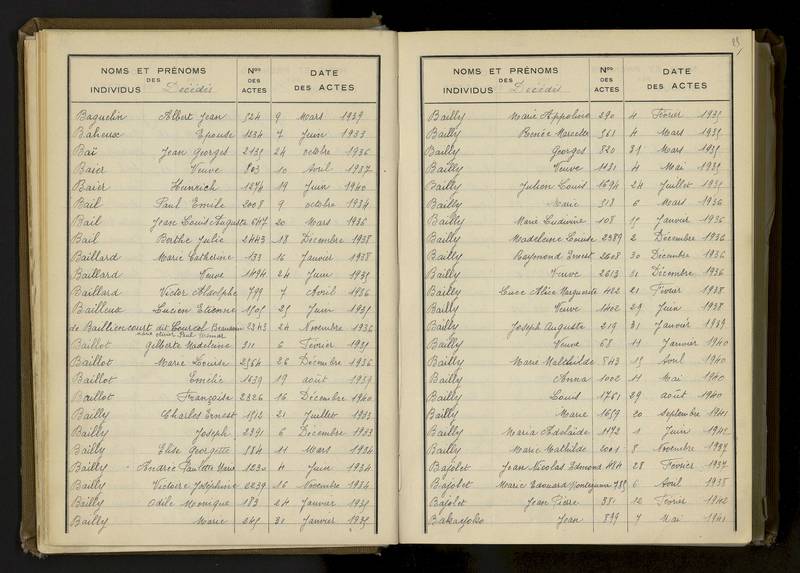 NOMS ET PRÉNOMS DES INDIVIDUS Décédés Nos DES ACTES DATE DES ACTES
Baguelin Albert Jean 524 9 Mars 1939
Baheux Epouse 1234 7 Juin 1933
Baï Jean Georges 2135 24 octobre 1936
Baier Veuve 803 10 Avril 1937
Baier Hinrich 1274 19 Juin 1940
Bail Paul Emile 2008 9 octobre 1934
Bail Jean Louis Auguste 647 20 Mars 1936
Bail Berthe Julie 2443 18 Décembre 1938
Baillard Marie Catherine 133 16 Janvier 1938
Baillard Veuve 1494 24 Juin 1935
Baillard Victor Adolphe 799 7 Avril 1936
Bailleux Lucien Etienne 1505 25 Juin 1935
de Bailliencourt dit Courcol 2343 24 Novembre 1936
Baillot Gilberte Madeleine 311 6 Février 1935
Baillot Marie Louise 2564 26 Décembre 1936
Baillot Emélie 1639 19 août 1939
Baillot Françoise 2326 16 Décembre 1940
Bailly Charles Ernest 1512 21 Juillet 1933
Bailly Joseph 2391 6 Décembre 1933
Bailly Elise Georgette 584 11 Mars 1934
Bailly Andrée Paulette 1230 4 Juin 1934
Bailly Victoire Joséphine 2239 16 Novembre 1934
Bailly Odile Monique 183 24 Janvier 1935
Bailly Marie 245 31 Janvier 1935
NOMS ET PRÉNOMS DES INDIVIDUS Décédés Nos DES ACTES DATE DES ACTES
Bailly Marie Appoline 290 4 Février 1935
Bailly Renée Marcelle 561 4 Mars 1935
Bailly Georges 820 31 Mars 1935
Bailly Veuve 1131 4 Mai 1935
Bailly Julien Louis 1694 24 Juillet 1935
Bailly Marie 518 6 Mars 1936
Bailly Marie Ludivine 108 15 Janvier 1936
Bailly Madeleine Louise 2389 2 Décembre 1936
Bailly Raymond Ernest 2608 30 Décembre 1936
Bailly Veuve 2613 31 Décembre 1936
Bailly Luce Alice Marguerite 422 21 Février 1938
Bailly Veuve 1402 29 Juin 1938
Bailly Joseph Auguste 219 31 Janvier 1939
Bailly Veuve 68 11 Janvier 1940
Bailly Marie Mathilde 843 15 Avril 1940
Bailly Anna 1002 11 Mai 1940
Bailly Louis 1761 29 août 1940
Bailly Marie 1659 20 Septembre 1941
Bailly Maria Adelaïde 1172 1 Juin
Bailly Marie Mathilde 2001 8 Novembre 1937
Bajolet Jean Nicolas Edmond 484 28 Février 1937
Bajolet Marie Edouard 6 Avril 1938
Bajolet Jean Pierre 381 12 Février 1942
Jean 899 7 Mai 1941